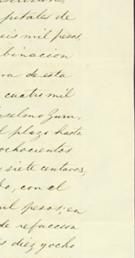 pitales de
seis mil pesos
binacion
va de esta
cuatro mil
nselmo Zuru
l plazo hade
ochocientos
y siete centavos,
do, con el
mil pesos, en
de refaccion
s diez y ocho